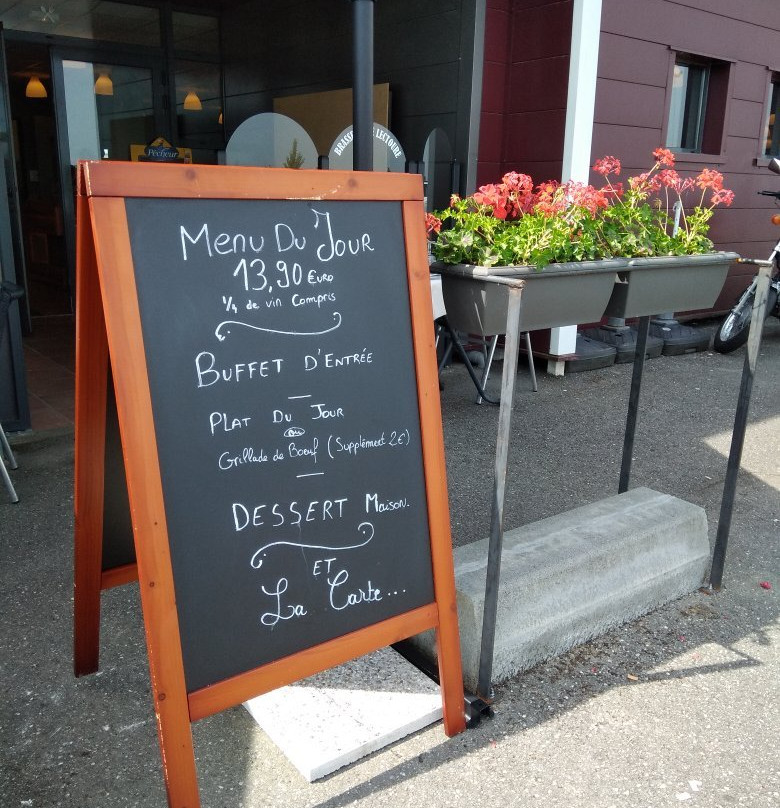 Pêcheur
BRASSERIE LECTOURE
Menu Du Jour
13,90 €uro
1/4 de vin Compris
BUFFET D'ENTRÉE
PLAT DU JOUR
ou
Grillade de Boeuf (Supplément 2€)
DESSERT Maison.
ET
La Carte...